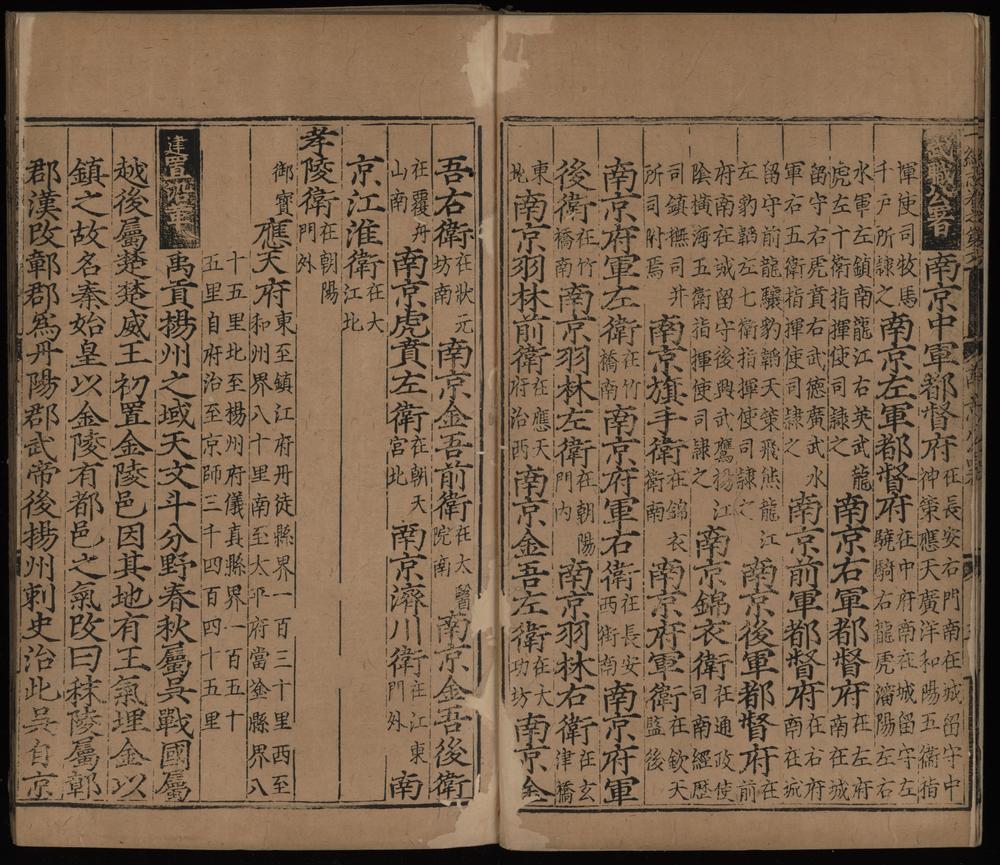 武職公署 南京中軍都督府 在長安右門南在城留守中神策應天廣洋和陽五衛指
揮使司牧馬千戶所隸之 南京左軍都督府 在中府南在城留守左驍騎右龍虎瀋陽左右
水軍左鎮南龍江右英武龍虎左十衛指揮使司隸之 南京右軍都督府 在左府南在城
留守右虎賁右武德廣武水軍右五衛指揮使司隸之 南京前軍都督府 在右府南在城
留守前龍驤豹韜天策飛熊龍江左豹韜左七衛指揮使司隸之 南京後軍都督府 在前
府南在城留守後興武鷹揚江陰橫海五衛指揮使司隸之 南京錦衣衛 在通政使司南經歷
司鎮撫司并所司附焉 南京旗手衛 在錦衣衛南 南京府軍衛 在欽天監後
南京府軍左衛 在竹橋南 南京府軍右衛 在長安西街南 南京府軍
後衛 在竹橋南 南京羽林左衛 在朝陽門內 南京羽林右衛 在玄津橋
東北 南京羽林前衛 在應天府治西 南京金吾左衛 在大功坊 南京金
吾右衛 在狀元坊南 南京金吾前衛 在太醫院南 南京金吾後衛
在覆舟山南 南京虎賁左衛 在朝天宮北 南京濟川衛 在江東門外 南
京江淮衛 在大江北
孝陵衛 在朝陽門外
御寶 應天府 東至鎮江府丹徒縣界一百三十里西至和州界八十里南至大平府當塗縣界八
十五里北至楊州府儀真縣界一百五十五里自府治至京師三千四百四十五里
建置沿革 禹貢揚州之域天文斗分野春秋屬吳戰國屬
越後屬楚楚威王初置金陵邑因其地有王氣埋金以
鎮之故名秦始皇以金陵有都邑之氣改曰秣陵屬鄣
郡漢改鄣郡為丹陽郡武帝後揚州刺史治此吳自京